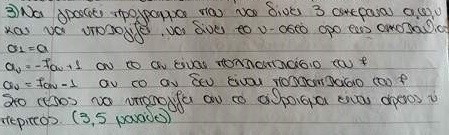 3) Να γραφτεί πρόγραμμα που να δίνεις 3 ακεραίους α,ι,ν
και να υπολογίζει, να δίνει το ν-οστό όρο της ακολουθίας
α1=α
αν=-7αν+1 αν το αν είναι πολλαπλάσιο του ρ
αν=7αν-1 αν το αν δεν είναι πολλαπλάσιο του ρ
Στο τέλος να υπολογίζει αν το άθροισμα είναι άρτιος ή
περιττός. (3,5 μονάδες)